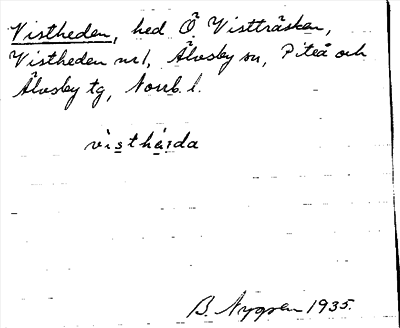 Vistheden, hed Ö. Vistträsken,
Vistheden nr1, Älvsby sn, Piteå och
Älvsby tg, Norrb. l.
B. Nygren 1935.